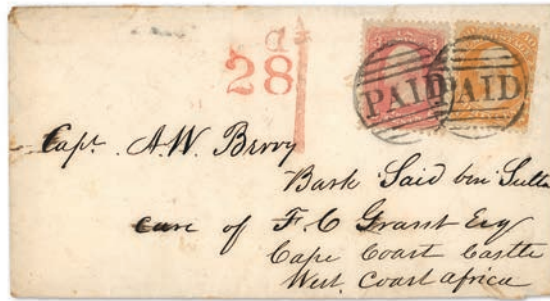 28
PAID PAID
Capt. A.W. Berry
Bark Said bin Sulta
care of F. C Grant Esq
Cape Coast Castle
West Coast africa